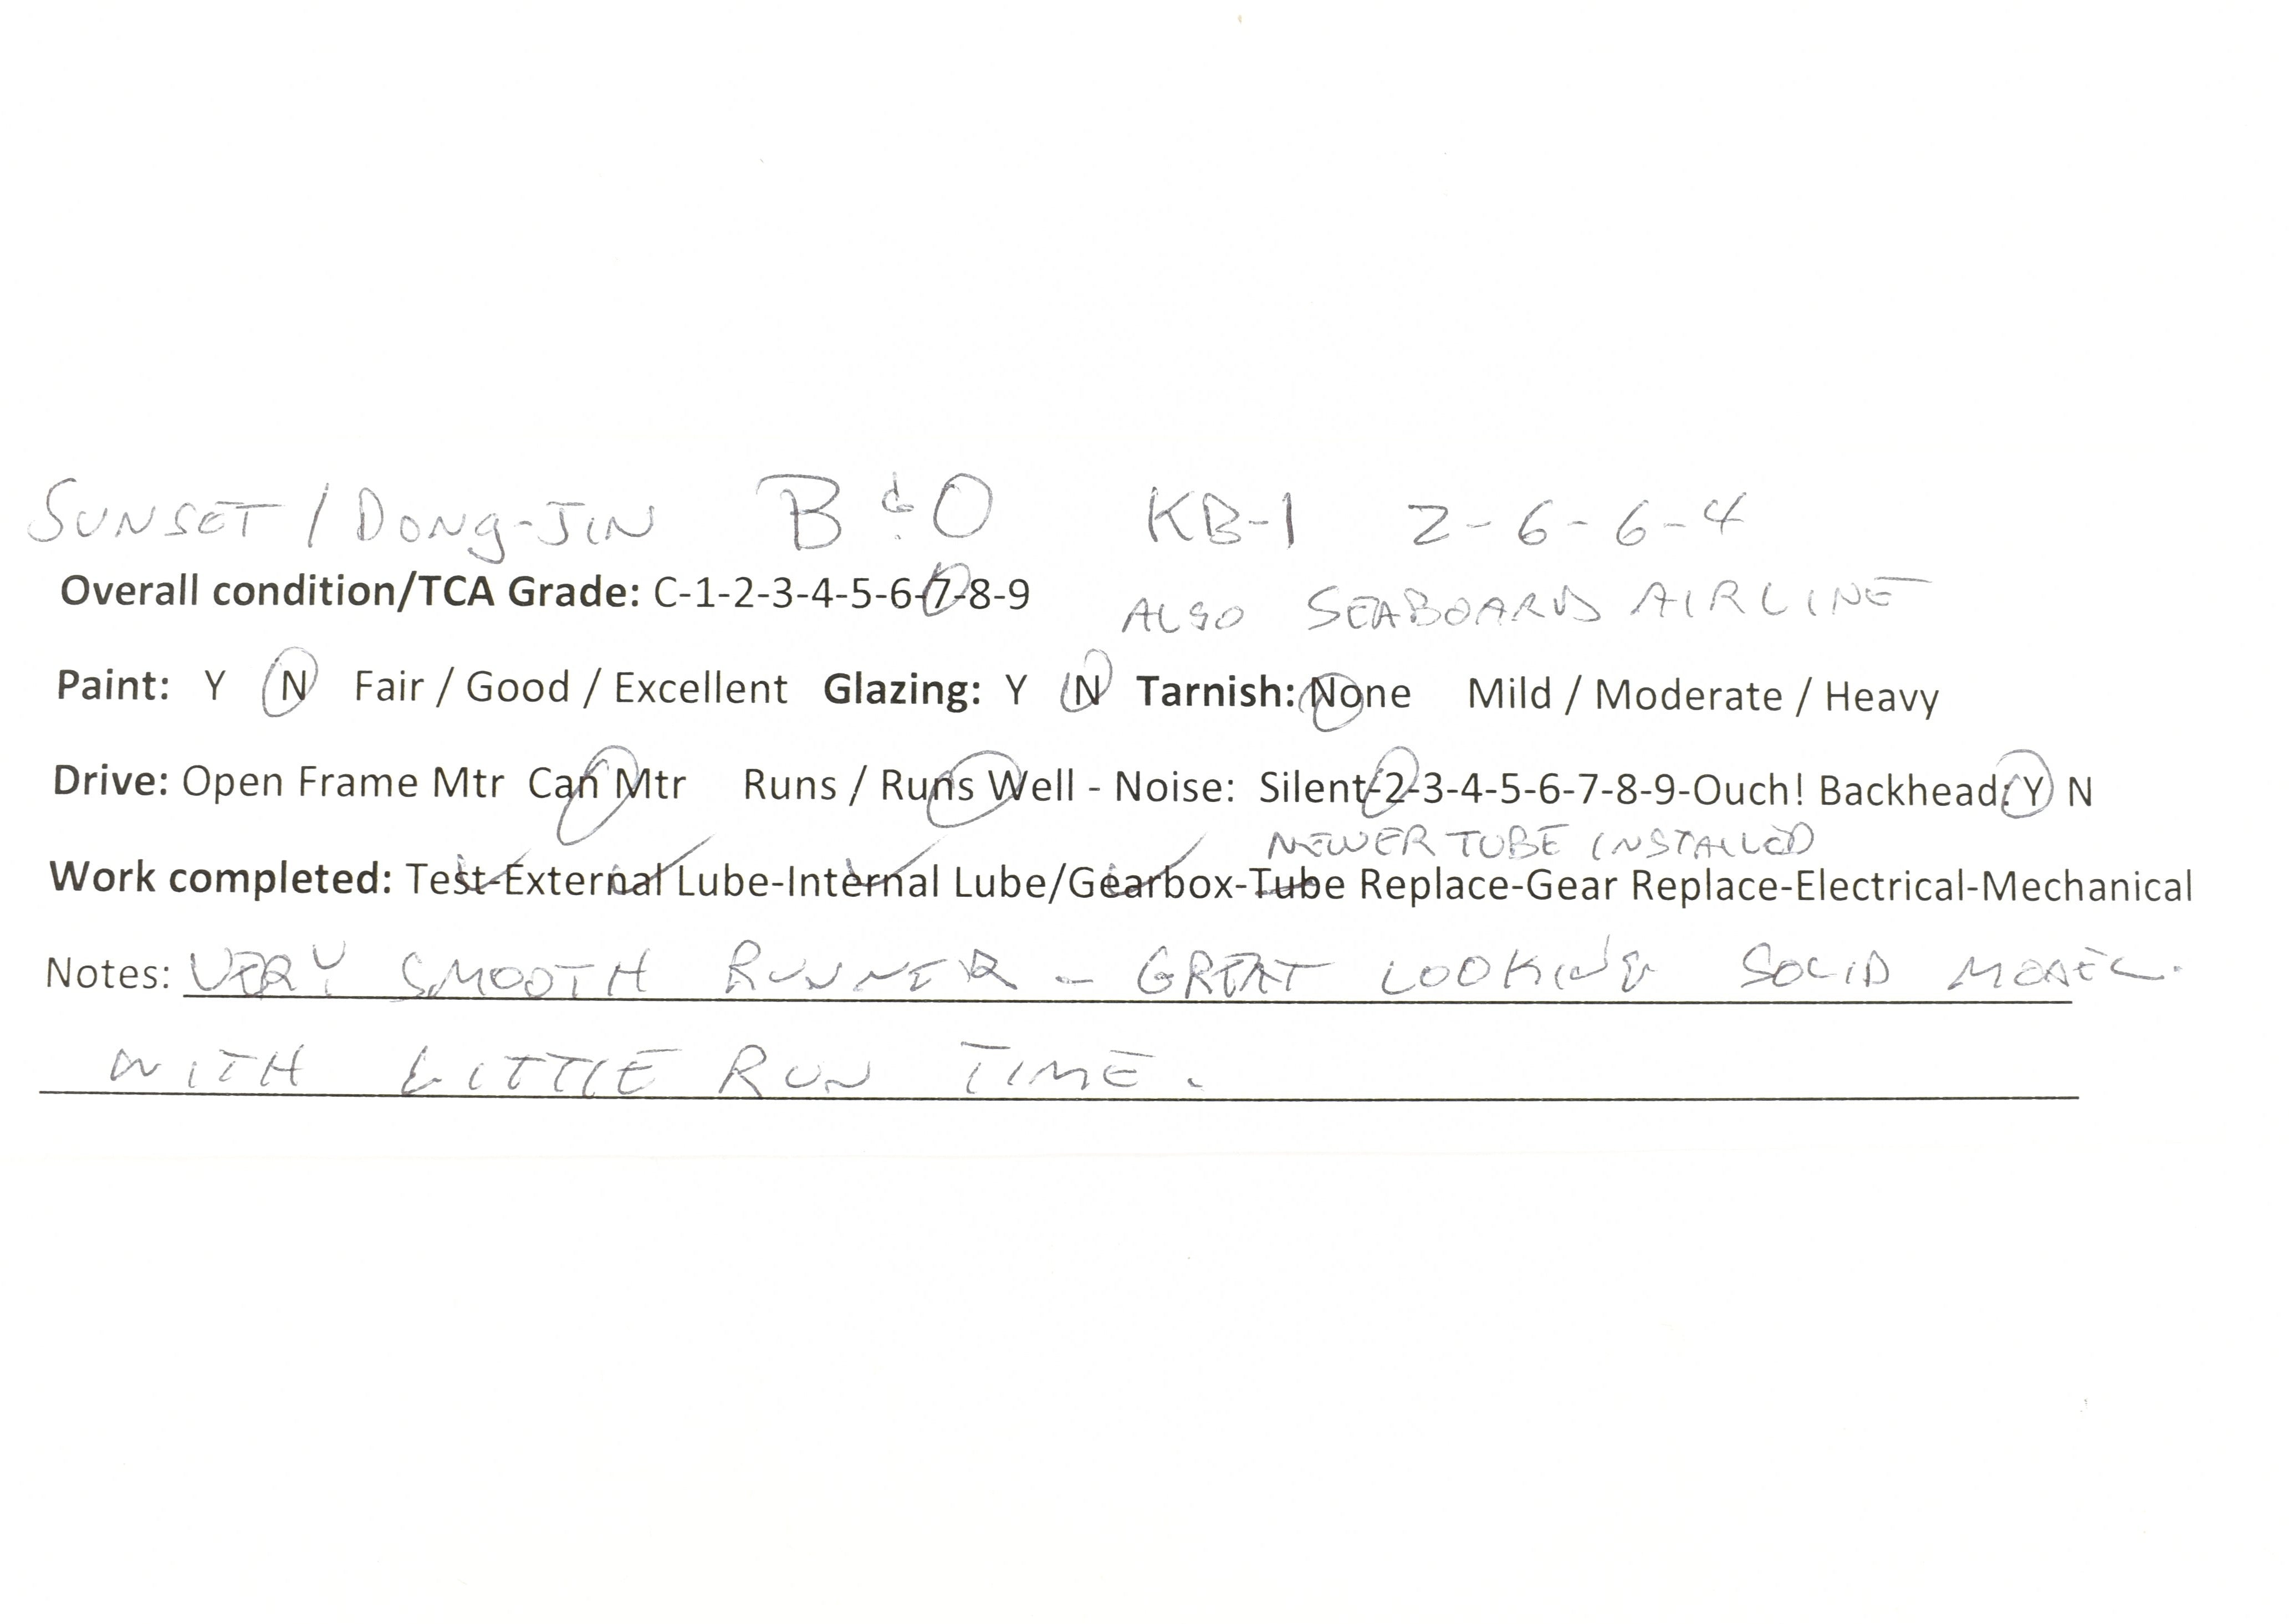 SUNSET / DONG-JIN B & O KB-1 2-6-6-4
Overall condition/TCA Grade: C-1-2-3-4-5-6-7-8-9
ALSO SEABOARD AIRLINE
Paint: Y N Fair / Good / Excellent Glazing: Y N Tarnish: None Mild / Moderate / Heavy
Drive: Open Frame Mtr Can Mtr Runs / Runs Well - Noise: Silent-2-3-4-5-6-7-8-9-Ouch! Backhead: Y N
NEWER TUBE INSTALLED
Work completed: Test-External Lube-Internal Lube/Gearbox-Tube Replace-Gear Replace-Electrical-Mechanical
Notes: VERY SMOOTH RUNNER - GREAT LOOKING SOLID MODEL.
WITH LITTLE RUN TIME.